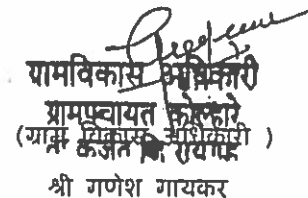 ग्रामविकास अधिकारी
ग्रामपंचायत कोल्हारे
(ग्राम विकास अधिकारी )
कर्जत जि. रायगड
श्री गणेश गायकर